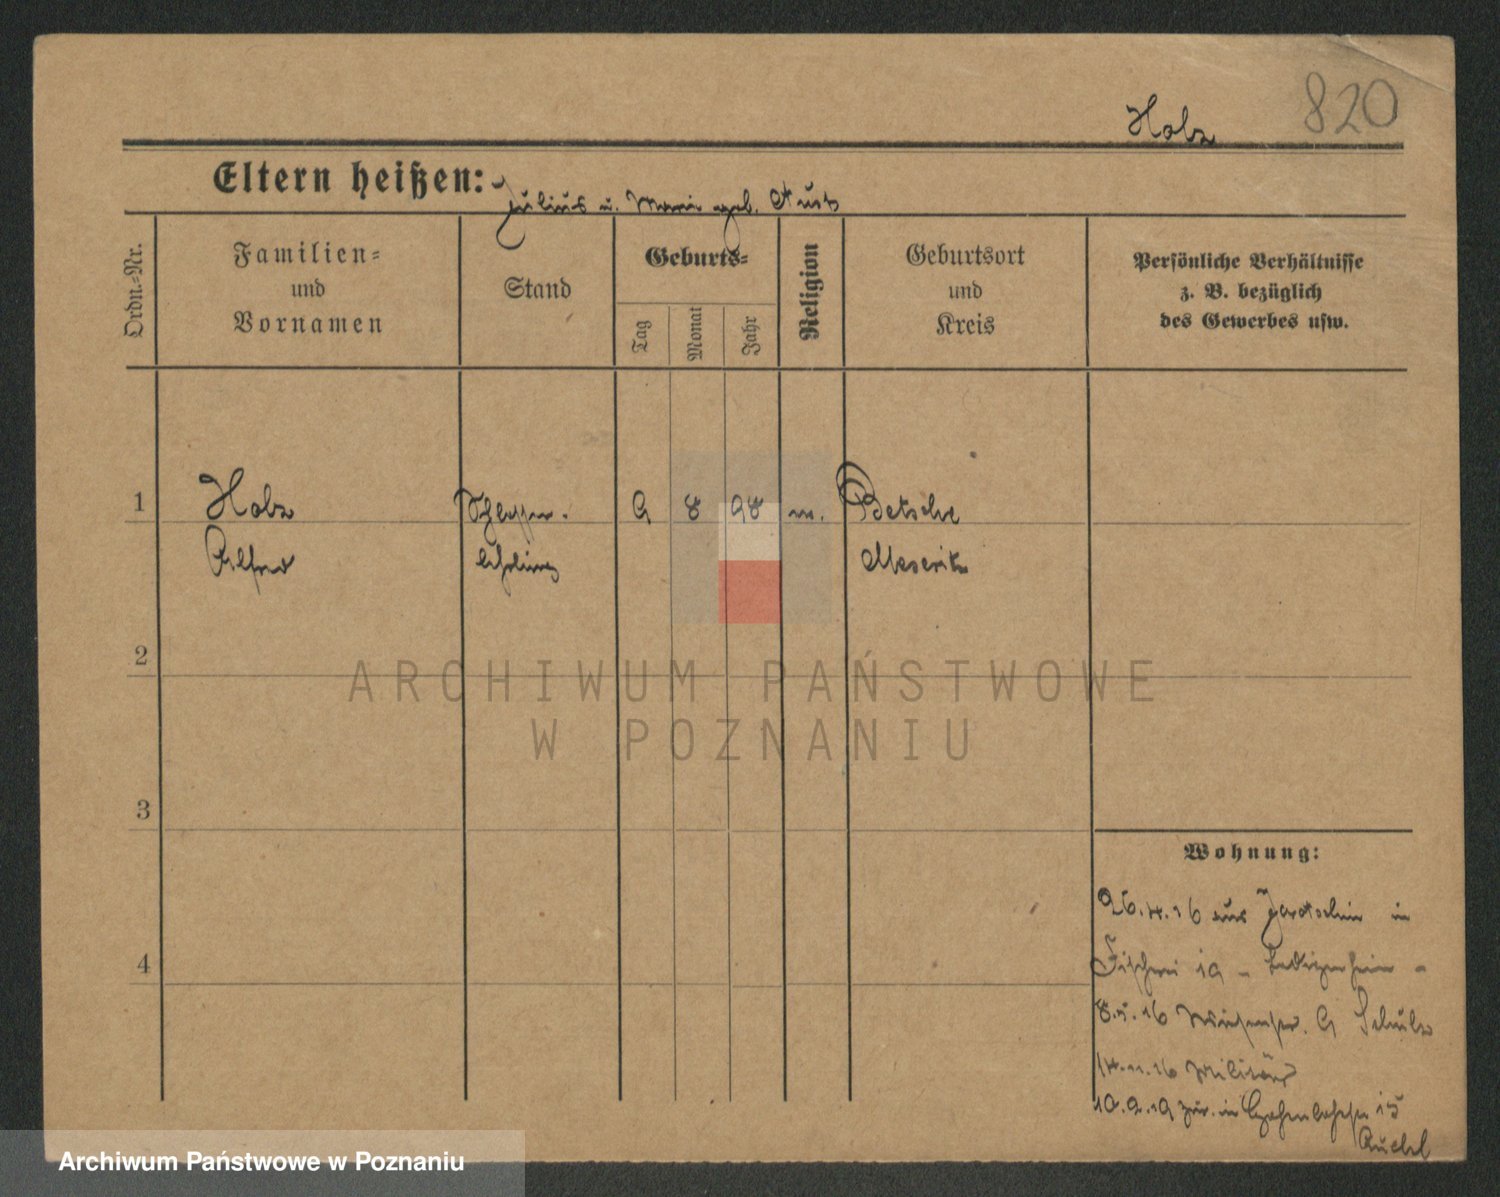 820
Holz
Eltern heißen: Julius u. Marie geb. Kust
Ordn.-Nr.
Familien-
und
Vornamen
Stand
Geburts-
Tag
Monat
Jahr
Religion
Geburtsort
und
Kreis
Persönliche Verhältnisse
z. B. bezüglich
des Gewerbes usw.
1
Holz 9 8 98 m. Betsche
Alfred lehrling Meseritz
2
ARCHIWUM PAŃSTWOWE
W POZNANIU
3
4
Wohnung:
26.4.16 aus Jarotschin in
Fischerei 19 - Ledigenheim -
8.5.16 9 Schulz
14.11.16 Militär
10.2.19 zur. in 15
Archiwum Państwowe w Poznaniu